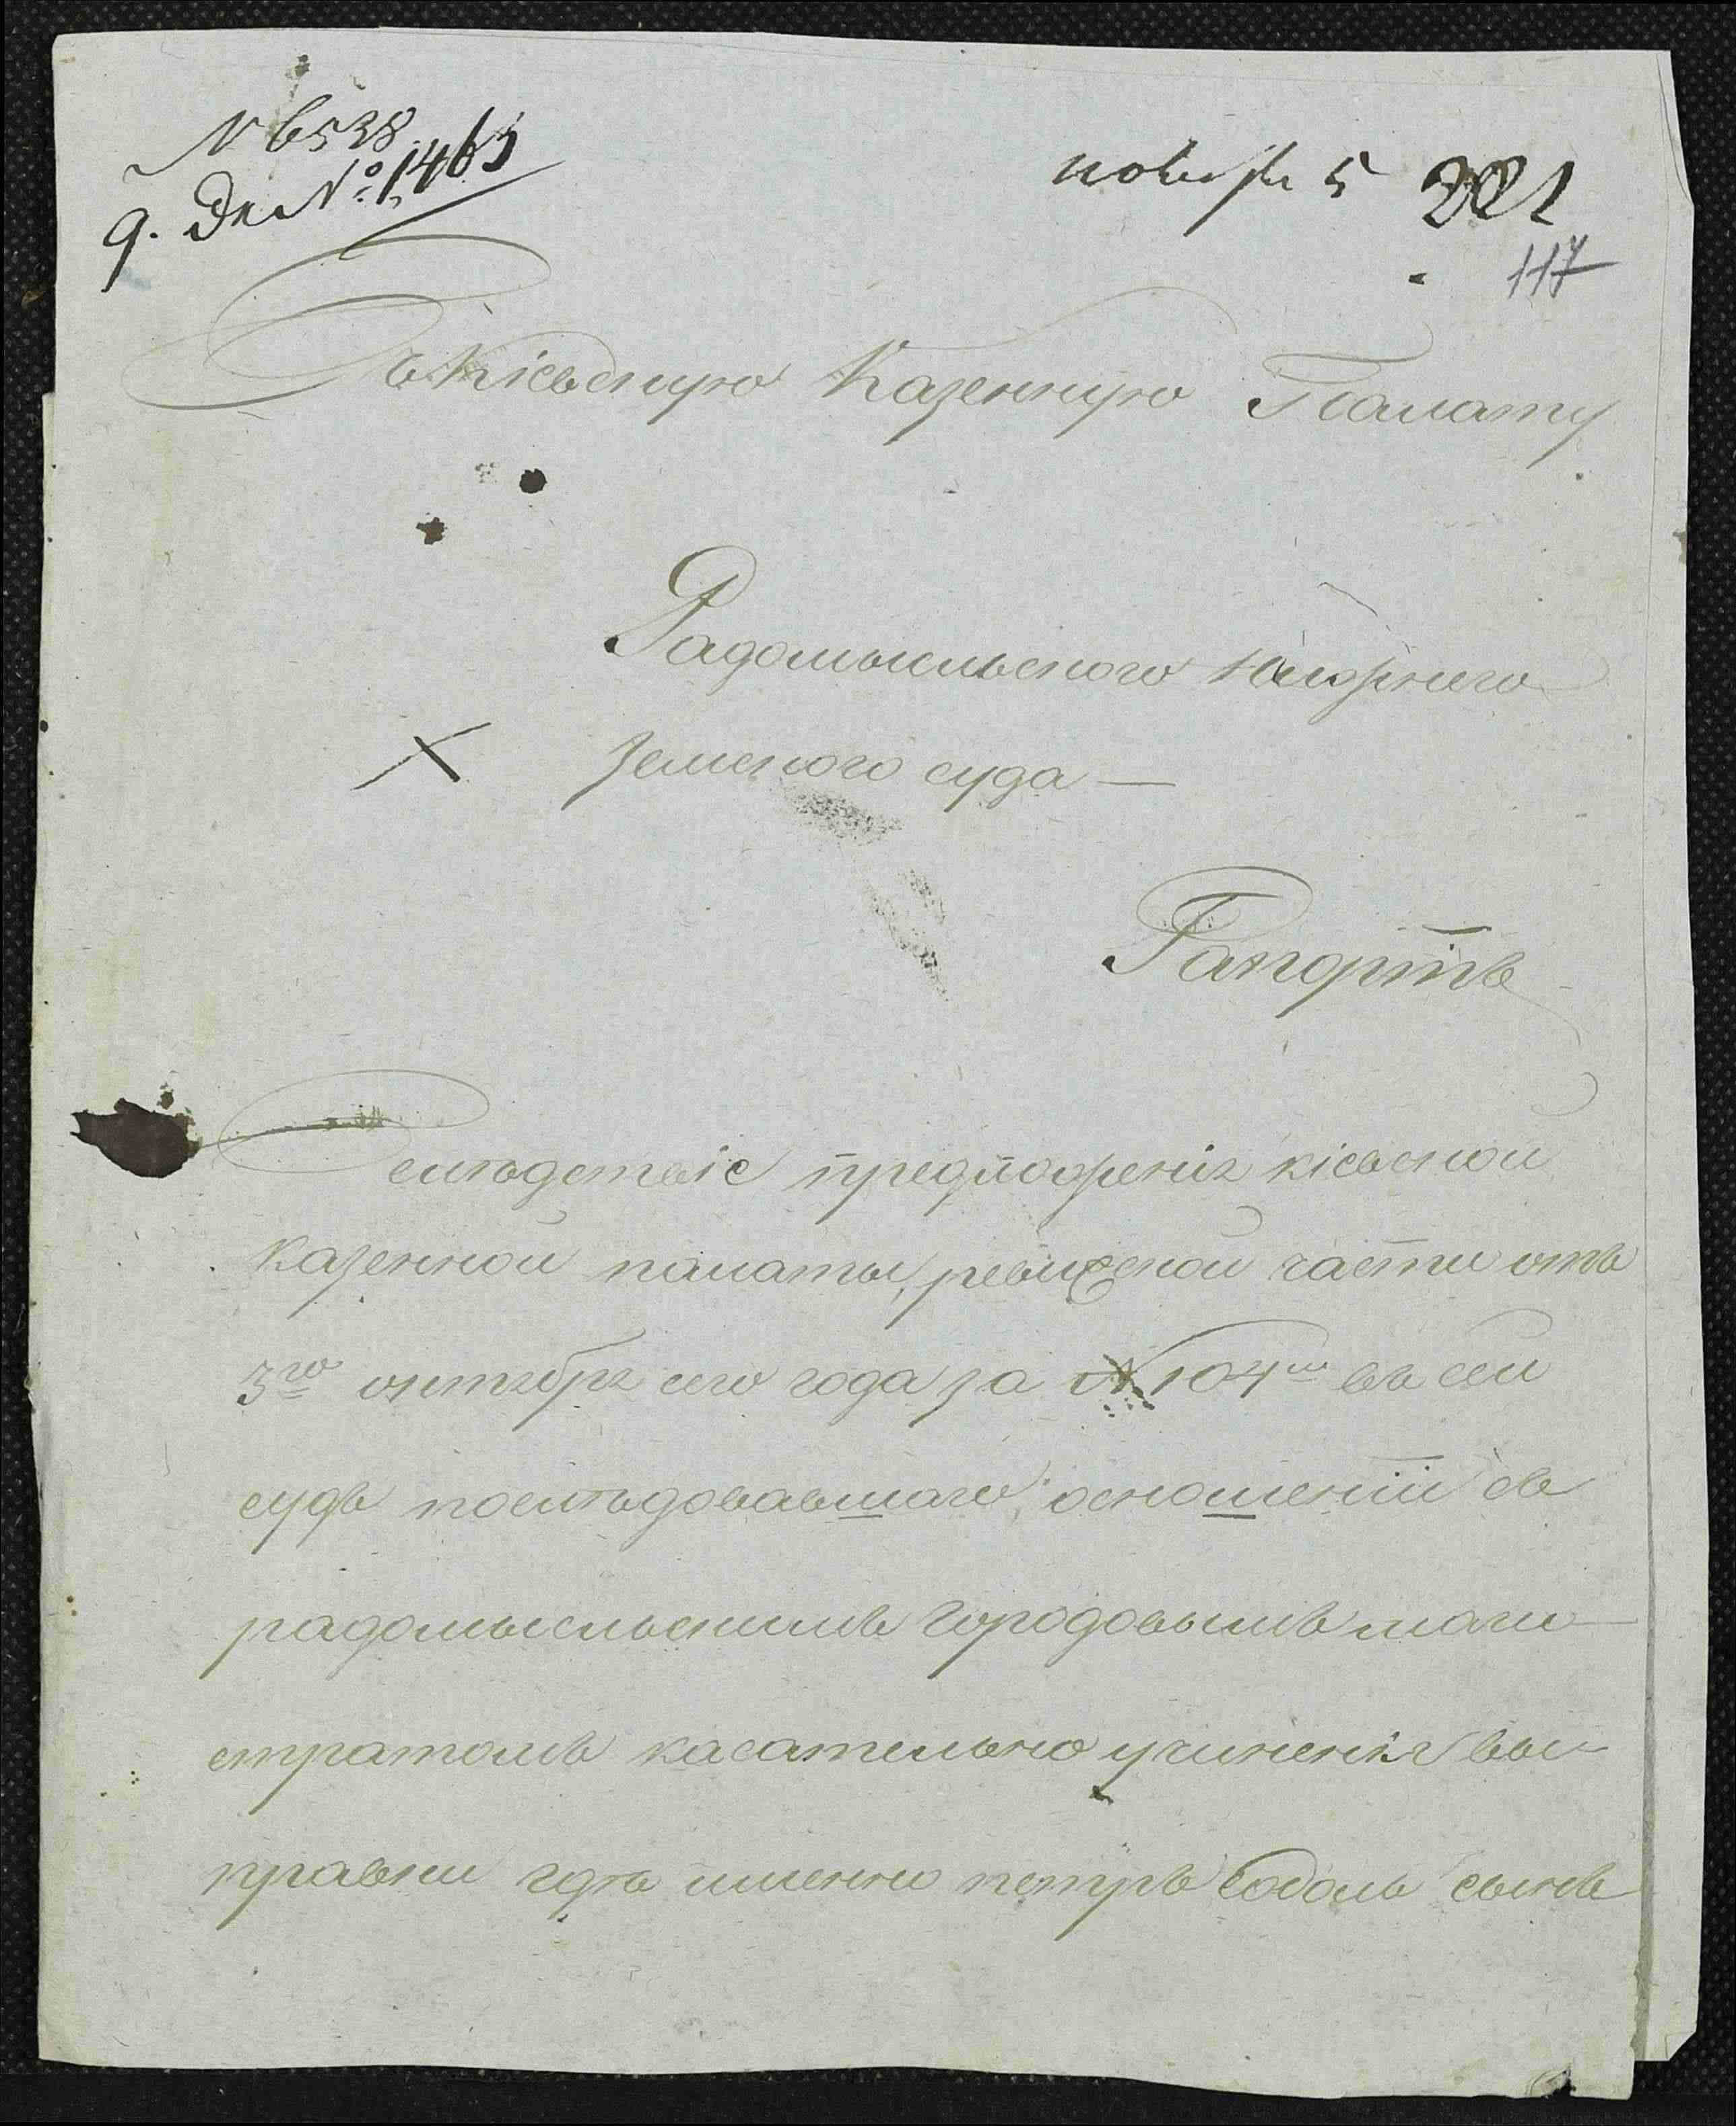 № 6538
ч. Де № 1463
ноября 5 221
117
Въ Кіевскую Казенную Палату
Радомысльского Нижнего
земского суда —
Рапортъ
Вслѣдствіе предложенія кіевской
казенной палаты, ревижской части отъ
3го октября сего года за № 104м въ сей
судъ послѣдовавшаго, осношеніи съ
радомысльскимъ городовымъ маги
стратомъ касательно учиненія вы-
правки гдѣ именно петръ сынъ